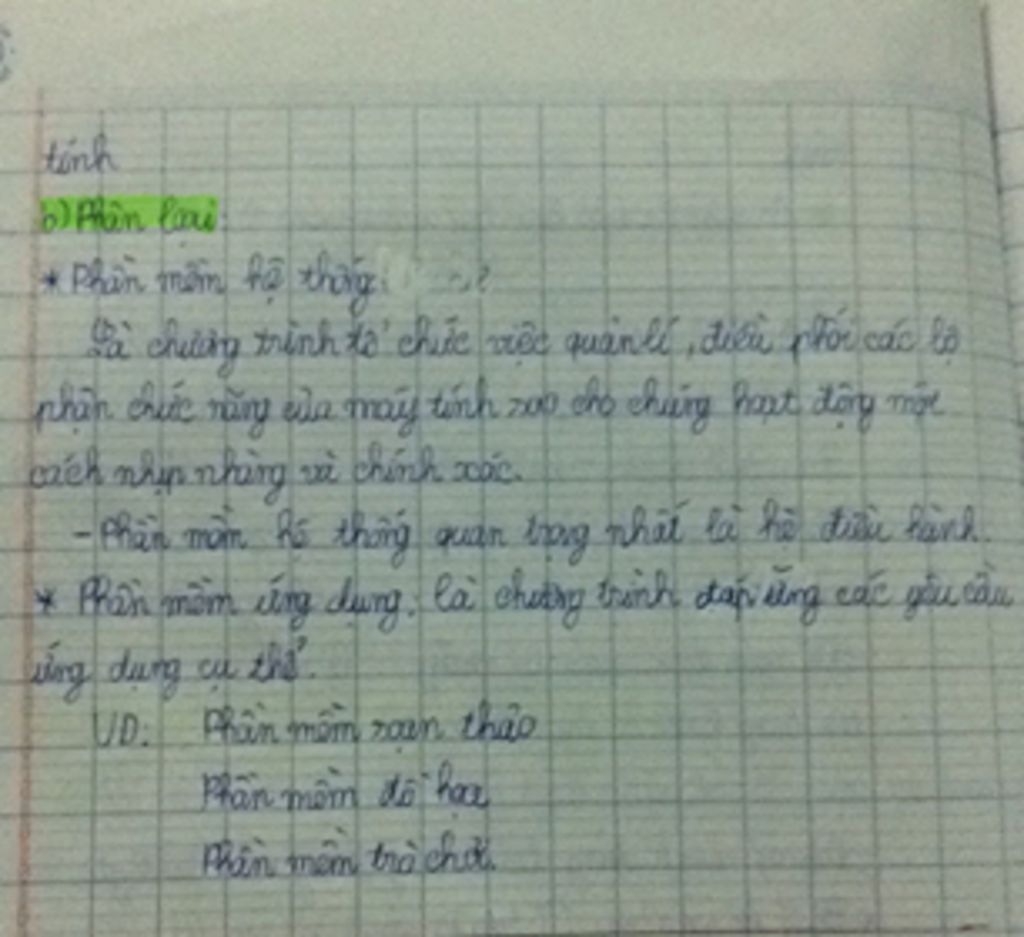 tính
b) Phân loại:
* Phần mềm hệ thống:
Là chương trình tổ chức việc quản lí, điều phối các bộ
phận chức năng của máy tính sao cho chúng hoạt động một
cách nhịp nhàng và chính xác.
- Phần mềm hệ thống quan trọng nhất là hệ điều hành.
* Phần mềm ứng dụng: là chương trình đáp ứng các yêu cầu
ứng dụng cụ thể.
VD: Phần mềm soạn thảo
Phần mềm đồ họa
Phần mềm trò chơi.